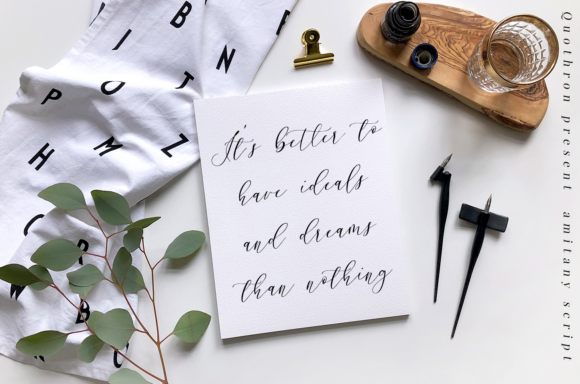 It's better to
have ideals
and dreams
than nothing
Quothron present amitany script
B
J
E
N
I
O
T
P
M
Z
H